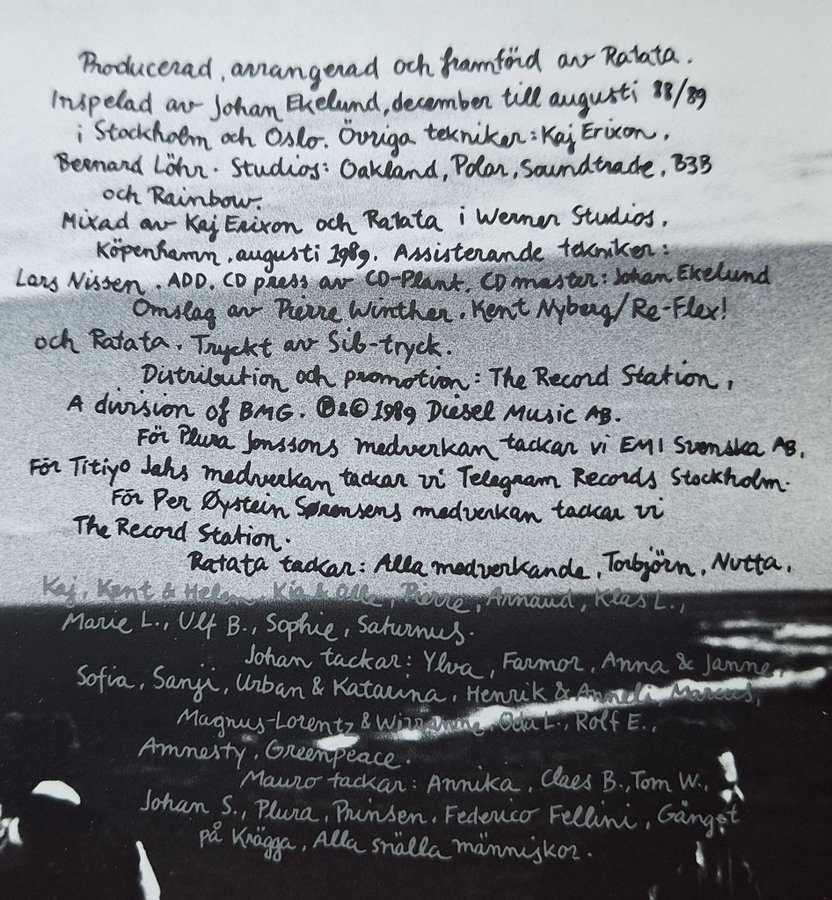 Producerad, arrangerad och framförd av Ratata.
Inspelad av Johan Ekelund, december till augusti 88/89
i Stockholm och Oslo. Övriga tekniker: Kaj Erixon,
Bernard Löhr. Studios: Oakland, Polar, Soundtrade, B3B
och Rainbow.
Mixad av Kaj Erixon och Ratata i Werner Studios,
Köpenhamn, augusti 1989. Assisterande tekniker:
Lars Nissen. ADD. CD press av CD-Plant. CD master: Johan Ekelund
Omslag av Pierre Winther, Kent Nyberg/Re-Flex!
och Ratata. Tryckt av Sib-tryck.
Distribution och promotion: The Record Station,
A division of BMG. ℗&© 1989 Diesel Music AB.
För Plura Jonssons medverkan tackar vi EMI Svenska AB.
För Titiyo Jahs medverkan tackar vi Telegram Records Stockholm.
För Per Øystein Sørensens medverkan tackar vi
The Record Station.
Ratata tackar: Alla medverkande, Torbjörn, Nutta,
Kaj, Kent & Helen, Kia & Olle, Pierre, Arnaud, Klas L.,
Marie L., Ulf B., Sophie, Saturnus.
Johan tackar: Ylva, Farmor, Anna & Janne,
Sofia, Sanji, Urban & Katarina, Henrik & Anneli, Marcus,
Magnus-Lorentz & Oda L., Rolf E.,
Amnesty, Greenpeace.
Mauro tackar: Annika, Claes B., Tom W.,
Johan S., Plura, Prinsen, Federico Fellini, Gänget
på Krägga, Alla snälla människor.